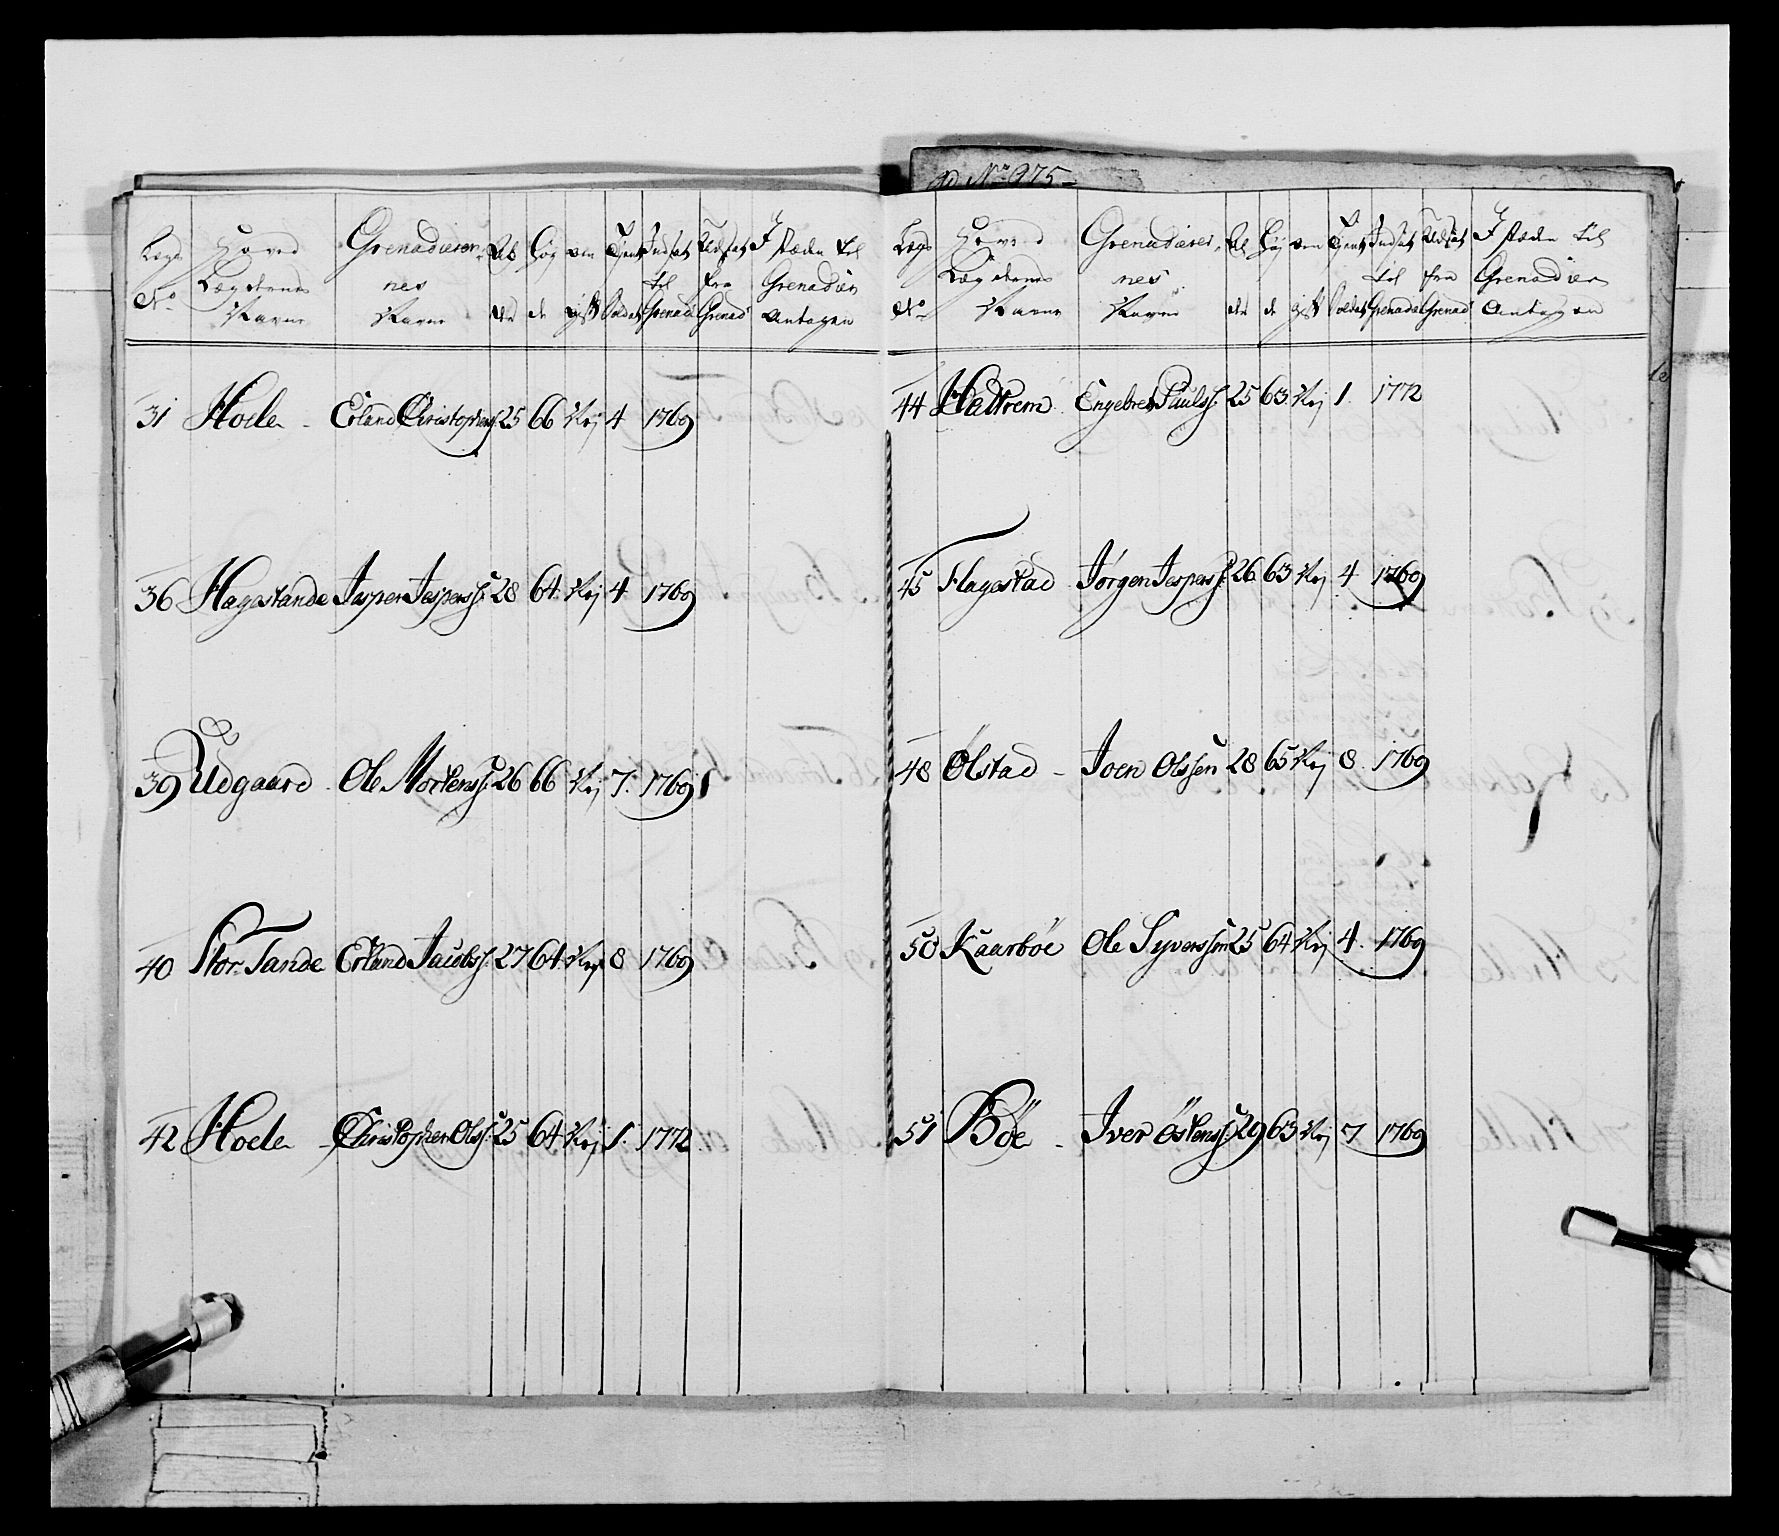 No 975
Lægs No
Hoved Lægdernes Navne
Grenadierernes Navne
Alder
Høyde
Tient Soldat
Indsat til Grenad
Udsat fra Grenad
I stæden til Grenadier Antagen
31 Hoele - Erland Christophers: 25 66 Nej 4 1769
36 Hagestande Jasper Jaspers: 28 64 Nej 4 1769
39 Uldgaard - Ole Mortens: 26 66 Nej 7. 1769
40 Stor Tande Erland Jacobs: 27 64 Nej 8 1769
42 Hoele - Christopher Ols: 25 64 Nej 1. 1772
Lægs No
Hoved Lægdernes Navne
Grenadierernes Navne
Alder
Høyde
Tient Soldat
Indsat til Grenad
Udsat fra Grenad
I stæden til Grenadier Antagen
44 Hattrem Engebret Pauls: 25 63 Nej 1. 1772
45 Flagestad Jørgen Jespers: 26 63 Nej 4 1769
48 Ølstad - Joen Olssen 28 65 Nej 8 1769
50 Kaarbøe Ole Syverssen 25 64 Nej 4. 1769
51 Bøe - Iver Östens: 29 63 Nej 7 1769